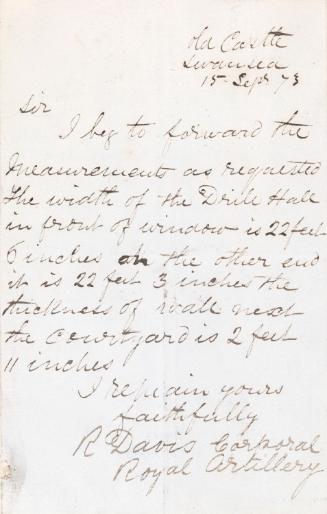 Old Castle
Swansea
15 Sept 73
Sir
I beg to forward the
Measurements as requested
the width of the Drill Hall
in front of window is 22 feet
6 inches on the other end
it is 22 feet 3 inches the
thickness of wall next
the Courtyard is 2 feet
11 inches
I remain yours
faithfully
R Davis Corporal
Royal Artillery